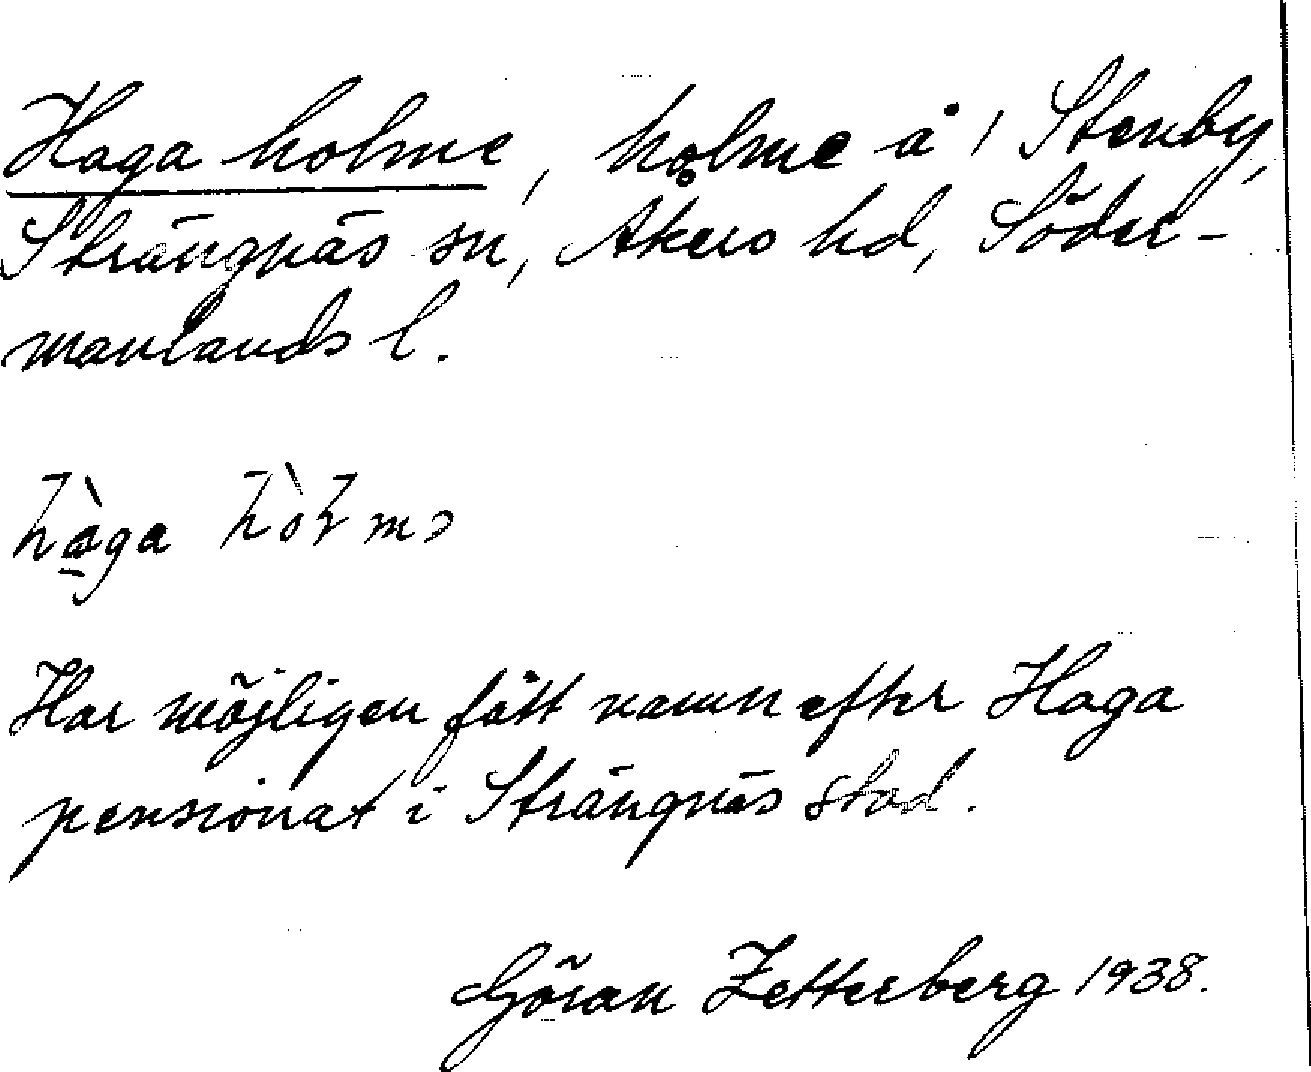 Haga holme, holme å 1 Stenby,
Strängnäs sn, Åkers hd, Söder-
manlands l.
hàga hòłmɔ
Har möjligen fått namn efter Haga
pensionat i Strängnäs stad.
Göran Zetterberg 1938.